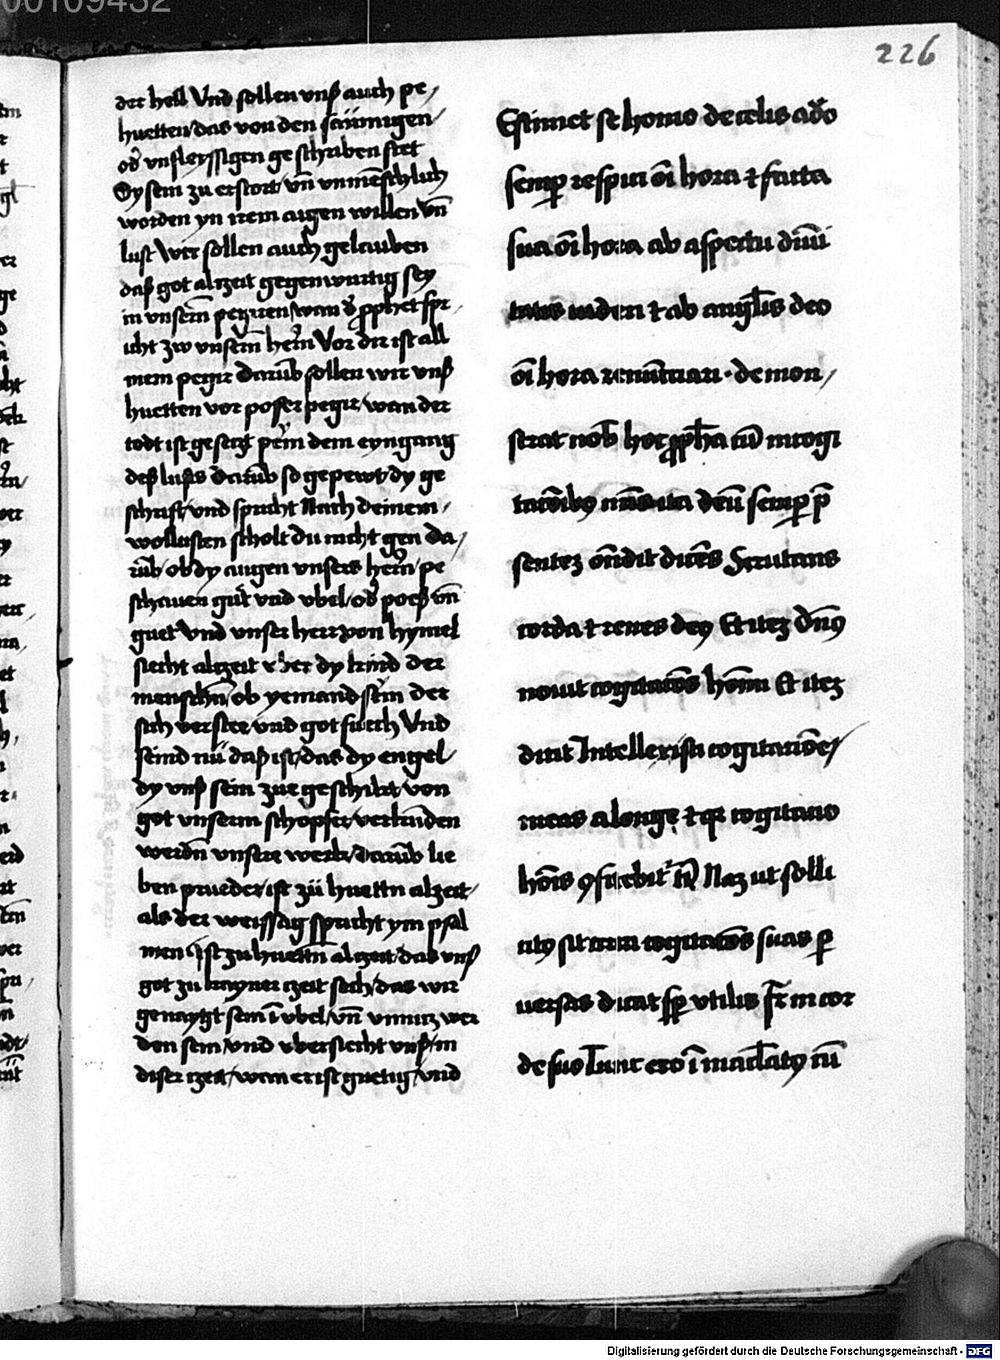 00109432
226
der hell Vnd sollen vnß auch pe/
huetten/das von den säümigen/
od' vnfleyssigen geschriben stet
Sy sein zu erstort/ vn̄ vnmēschlich
worden yn irem aigen willen vn̄
lust Wir sollen auch gelauben
daß got alczeit gegenwurtig sey
in vnserm̄ pegiren/wan d' pphet spr/
icht zw vnserm̄ hern̄ Vor dir ist all
mein pegir Darūb sollen wir vnß
huetten vor poser pegir/wan der
todt ist geseczt peim dem eyngang
deß lusts Darūb so gepewt dy ge
schrift/vnd spricht Nach deinem/
wollusten scholt du nicht gen Da/
rūb/ob dy augen vnsers hern̄/pe
schauen gūt vnd vbel/od' poeß vn̄
guet Vnd vnser herr von hymel
siecht alczeit vber dy kind der
menschn̄/ob yemand sein der
sich verstee/vnd got suech Vnd
seind nü daß ist/das dy engel/
dy vnß sein zue geschikt/von
got vnserm schopfer/verkunden
werdn̄ vnsere werk/darūb lie
ben prueder/ist zü huettn alczeit/
als der weissag spricht ym psal
men ist zu huettn̄ alczeit/das vnß
got zu kayner czeit sech/das wir
genaygt sein ī vbel/vn̄ vnnucz wer
den sein/vnd vbersiecht vnß/in
diser czeit/wan er ist guetig/vnd
Estimet se homo de celis a do
semp respici oī hora & facta
sua oī hora ab aspectu diuī
tatis uideri & ab angl̄is deo
oī hora renūtiari · demon/
strat nob' hoc ppħa cū in cogi
tacōib9 nr̄is ita deū semp p̄
sentez on̄dit dicēs Scrutans
corda & renes de9 Et itez Dn̄9
nouit cogitacōs hoīm Et itez
dicit Intellexisti cogitaciōes/
meas a longe & qr cogitacio
hoīs 9fitebit' t' Naz ut solli
cit9 sit circa cogitacōs suas p
uersas dicat sp vtilis fr̄ in cor
de suo Tunc ero ī maclat9 cū
Digitalisierung gefördert durch die Deutsche Forschungsgemeinschaft - DFG